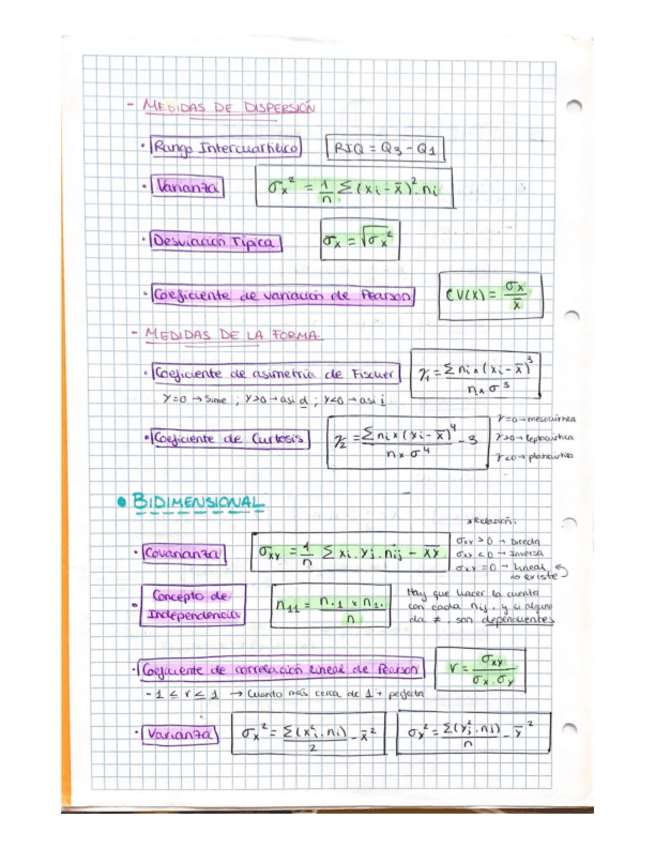 - MEDIDAS DE DISPERSIÓN
• Rango Intercuartílico RIQ = Q3 - Q1
• Varianza σx² = 1/n Σ(xi - x̄)². ni
• Desviación Típica σx = √σx²
• Coeficiente de variación de Pearson CV(X) = σx/x̄
- MEDIDAS DE LA FORMA
• Coeficiente de asimetría de Fischer γ1 = Σ ni x (xi - x̄)³ / n x σ³
γ=0 → Sime ; γ>0 → asi d ; γ<0 → asi i
• Coeficiente de Curtosis γ2 = Σ ni x (xi - x̄)⁴ / n x σ⁴ - 3
γ=0 → mesocúrtica
γ>0 → leptocúrtica
γ<0 → platicúrtica
• BIDIMENSIONAL
* Relación:
• Covarianza σxy = 1/n Σ xi. yj. nij - x̄ȳ
σxy > 0 → Directa
σxy < 0 → Inversa
σxy = 0 → Lineal
no existe
• Concepto de Independencia n11 = n.1 x n1. / n
Hay que hacer la cuenta
con cada nij, y si alguno
da ≠, son dependientes
• Coeficiente de correlación Lineal de Pearson r = σxy / σx . σy
- 1 ≤ r ≤ 1 → Cuanto más cerca de 1 + perfecta
• Varianza σx² = Σ(xi². ni) / 2 - x̄² σy² = Σ(yj². nj) / n - ȳ²